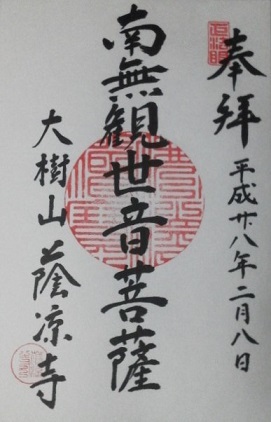 奉拝
平成廿八年二月八日
南無観世音菩薩
大樹山蔭凉寺